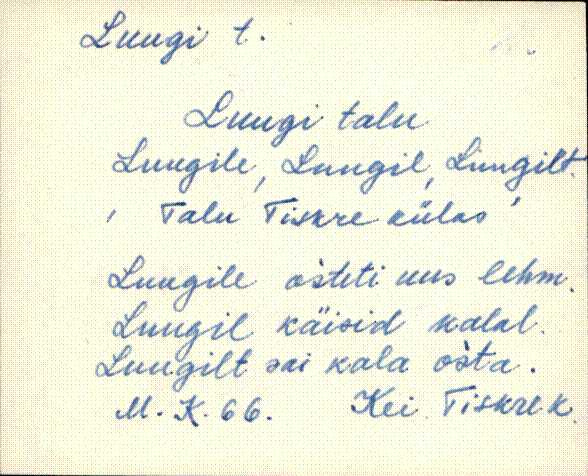 Luugi t.
Luugi talu
Luugile, Luugil, Luugilt.
' Talu Tiskre külas '
Luugile osteti uus lehm.
Luugil käisid kalal.
Luugilt sai kala osta.
M. K. 66. Kei Tiskre k.